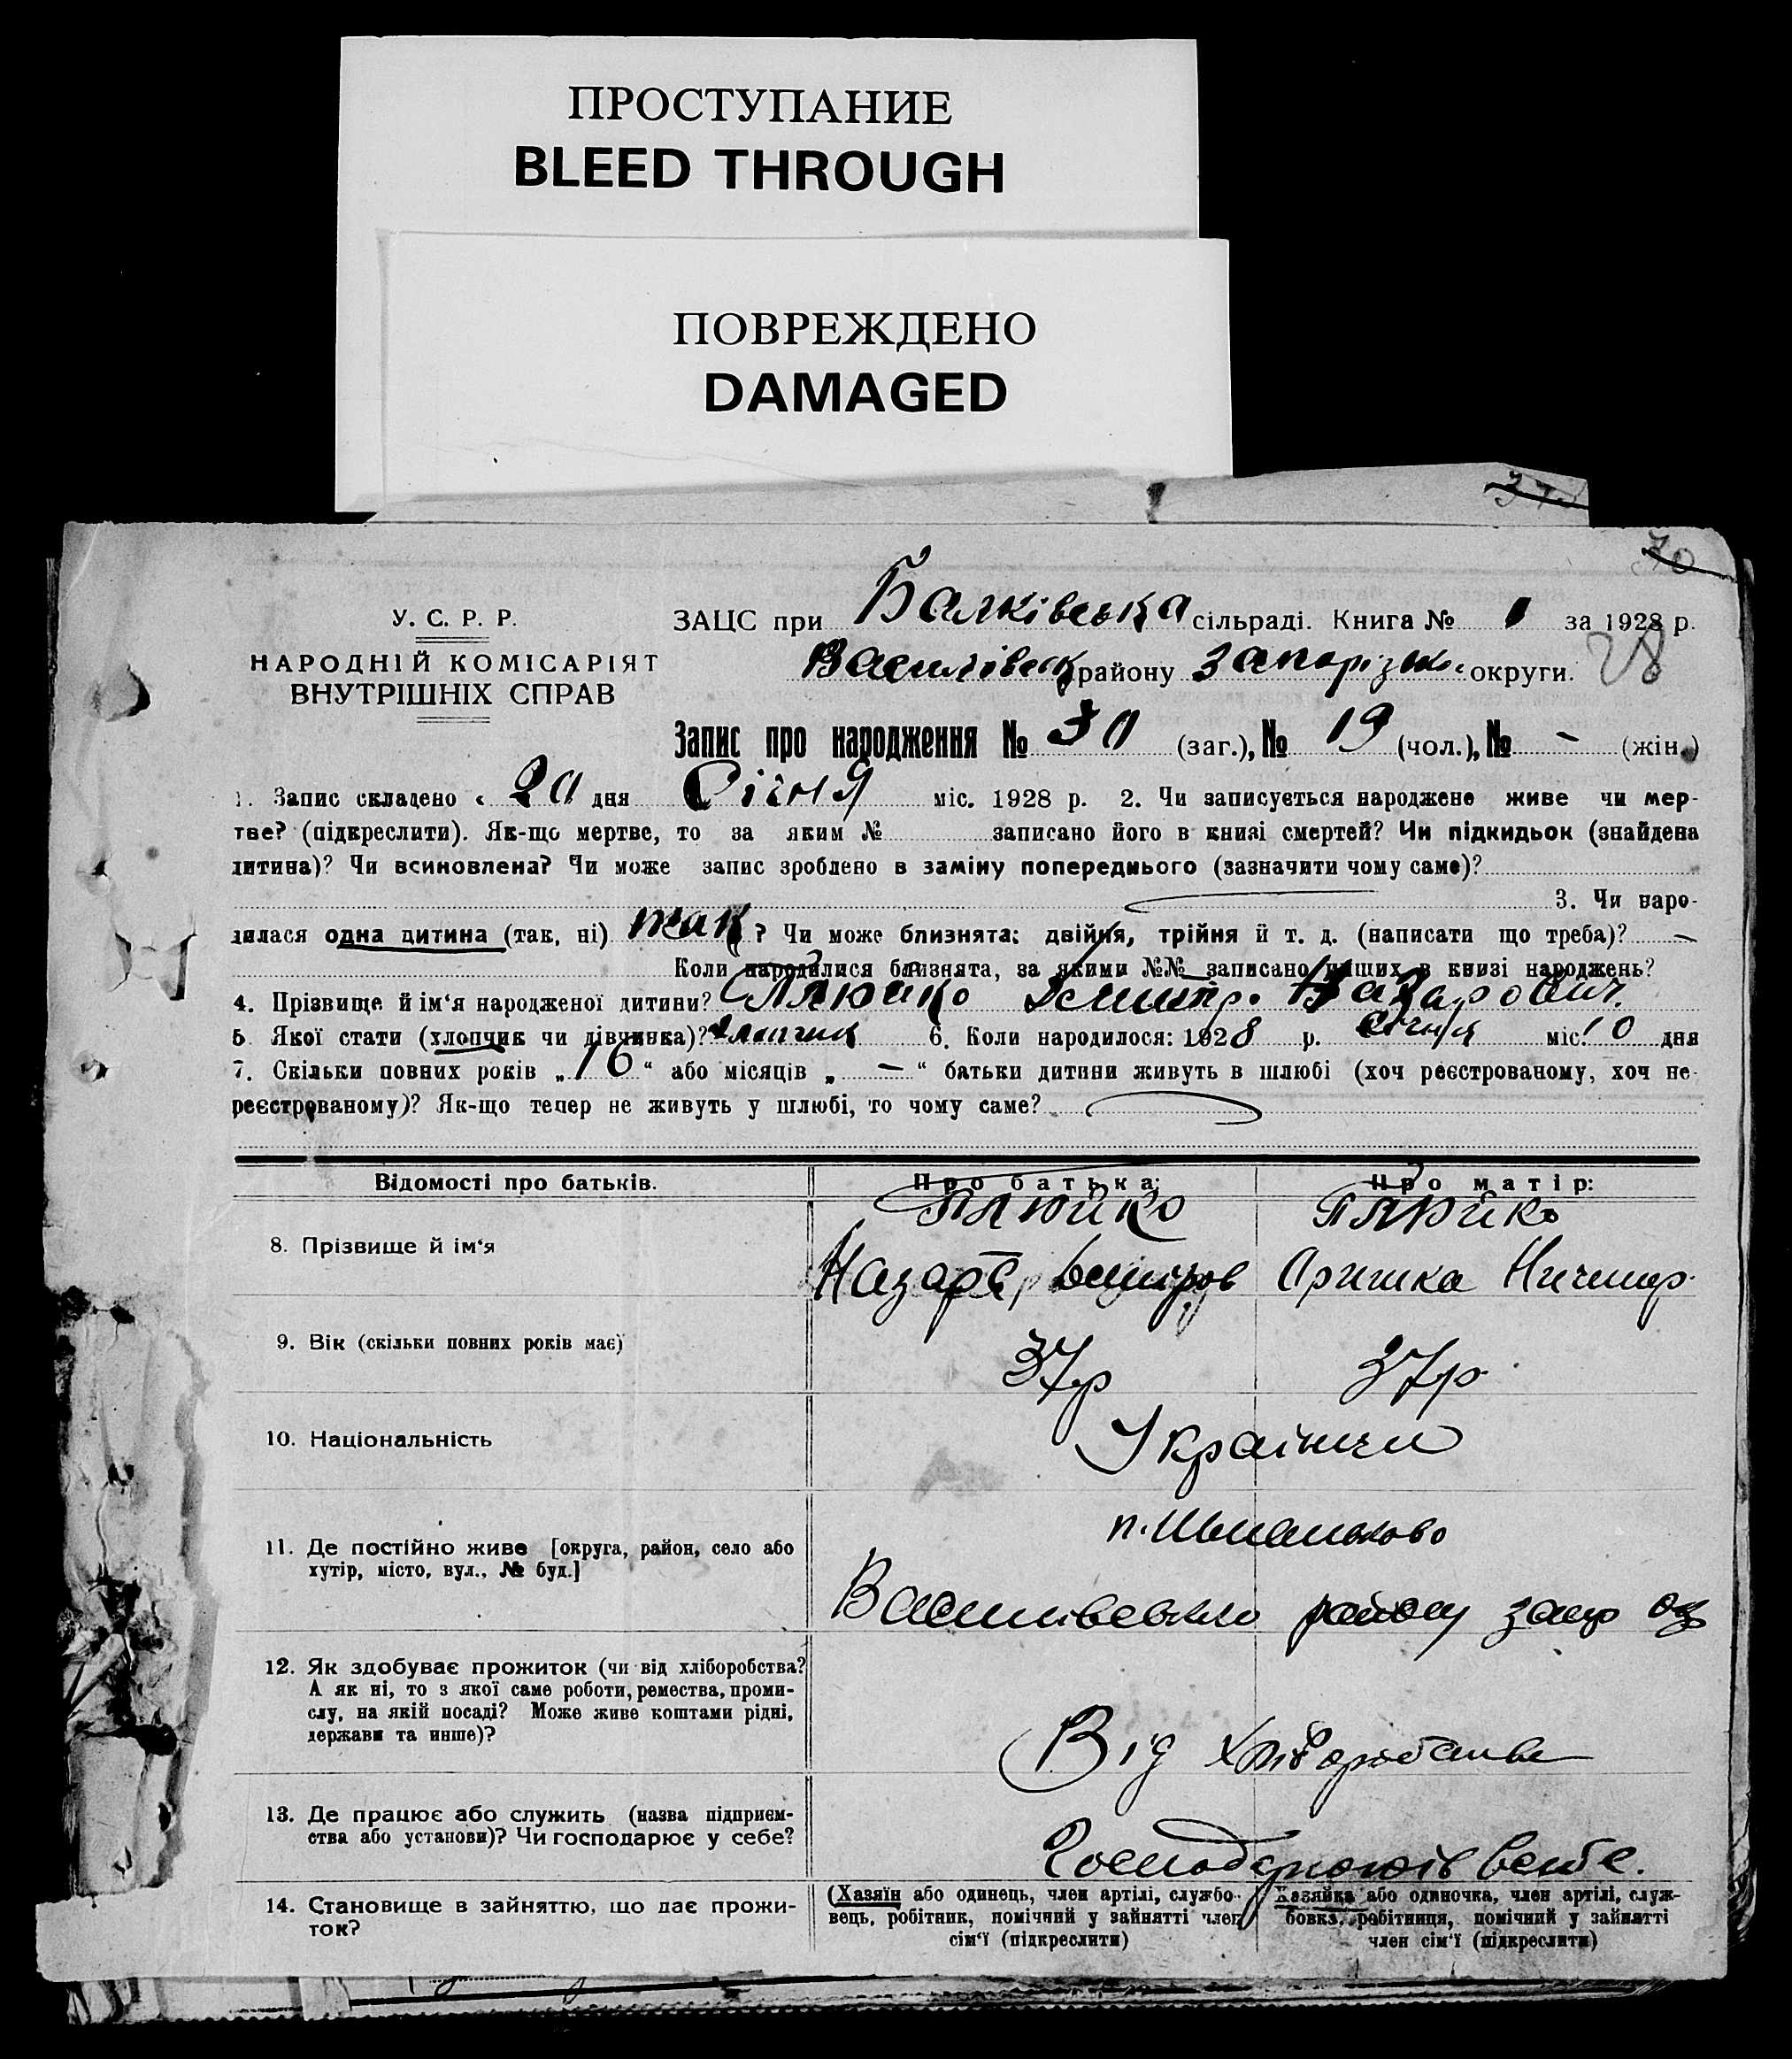 ПРОСТУПАНИЕ
BLEED THROUGH
ПОВРЕЖДЕНО
DAMAGED
370
У. С. Р. Р.
НАРОДНІЙ КОМІСАРІЯТ
ВНУТРІШНІХ СПРАВ
ЗАЦС при Балківська сільраді. Книга № 1 за 1928 р.
Василівськ району Запорізько округи.
28
Запис про народження № 30 (заг.), № 19 (чол.), № - (жін.)
1. Запис складено « 20 дня Січня міс. 1928 р. 2. Чи записується народжене живе чи мер-
тве? (підкреслити). Як-що мертве, то за яким № записано його в книзі смертей? Чи підкидьок (знайдена
дитина)? Чи всиновлена? Чи може запис зроблено в заміну попереднього (зазначити чому саме)?
3. Чи наро-
дилася одна дитина (так, ні) так ? Чи може близнята: двійня, трійня й т. д. (написати що треба)? —
Коли народилися близнята, за якими №№ записано инших в книзі народжень?
4. Прізвище й ім‘я народженої дитини? Плюйко Дмитро Назарович.
5 Якої стати (хлопчик чи дівчинка)? хлопчик 6. Коли народилося: 1928 р. січня міс. 10 дня
7. Скільки повних років „ 16 “ або місяців „ — “ батьки дитини живуть в шлюбі (хоч реєстрованому, хоч не-
реєстрованому)? Як-що тепер не живуть у шлюбі, то чому саме?
Відомості про батьків. Про батька: Про матір:
8. Прізвище й ім‘я
Плюйко Плюйко
Назар Оришка Ничипор
9. Вік (скільки повних років має)
37р 37р.
10. Національність
Українци
11. Де постійно живе [округа, район, село або
хутір, місто, вул., № буд.]
Василівсько району запр ок
12. Як здобуває прожиток (чи від хліборобства?
А як ні, то з якої саме роботи, ремества, проми-
слу, на якій посаді? Може живе коштами рідні,
держави та инше)?
Від хліборобства
13. Де працює або служить (назва підприєм-
ства або установи)? Чи господарює у себе?
Господарюють в себе.
14. Становище в зайняттю, що дає прожи-
ток?
(Хазяїн або одинець, член артілі, службо-
вець, робітник, помічний у зайнятті член
сім‘ї (підкреслити)
Хазяйка або одиночка, член артілі, служ-
бовка, робітниця, помічний у зайнятті
член сім‘ї (підкреслити)